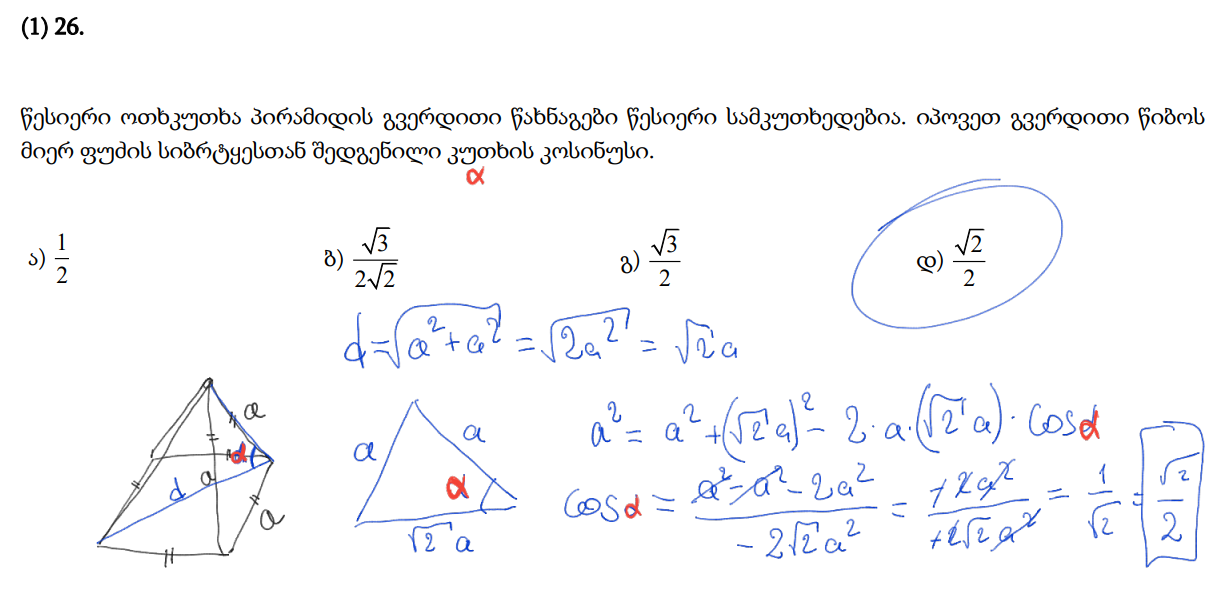 (1) 26.
წესიერი ოთხკუთხა პირამიდის გვერდითი წახნაგები წესიერი სამკუთხედებია. იპოვეთ გვერდითი წიბოს
მიერ ფუძის სიბრტყესთან შედგენილი კუთხის კოსინუსი.
α
ა) 1/2 ბ) √3/(2√2) გ) √3/2 დ) √2/2
d=√(a²+a²) = √(2a²) = √2 a
a² = a² + (√2 a)² - 2·a·(√2 a)·cosα
cosα = (a² - a² - 2a²)/(-2√2 a²) = (+2a²)/(+2√2 a²) = 1/√2 = √2/2
a
α
a
d
a
a
a
α
√2 a